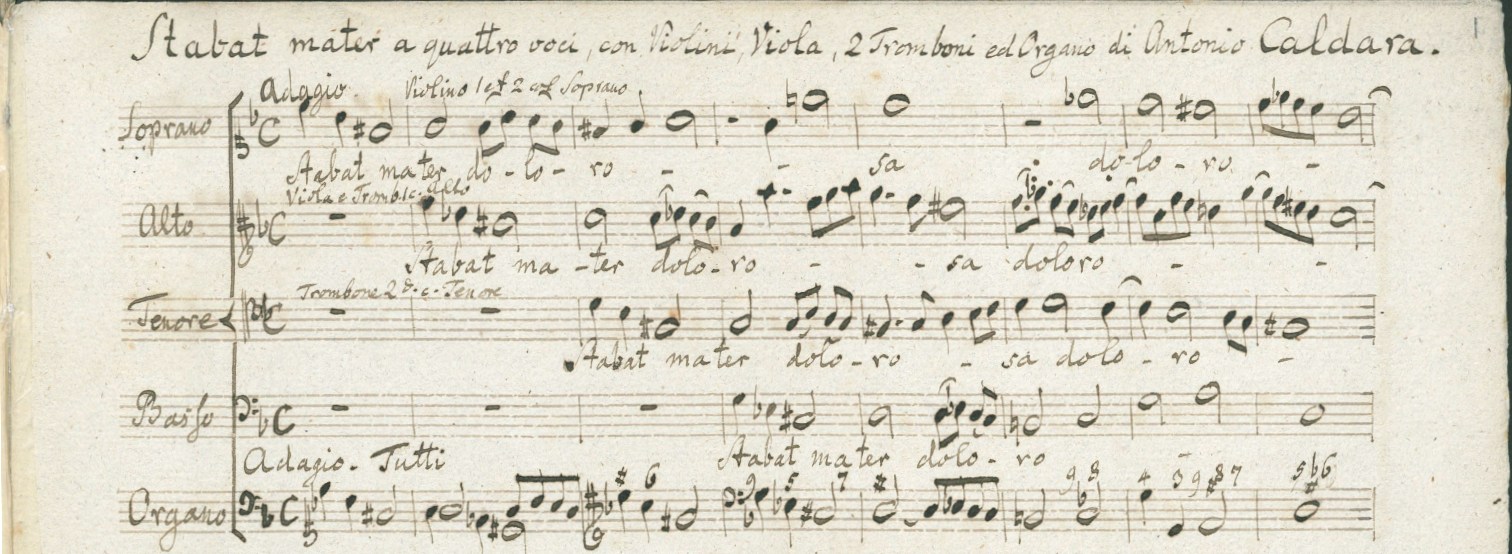 Stabat mater a quattro voci, con Violini, Viola, 2 Tromboni ed Organo di Antonio Caldara.
1
Adagio. Violino 1 et 2 col Soprano.
Soprano
Stabat mater do - lo - ro - - sa do - lo - ro - -
Viola e Tromb. 1 c. Alto
Alto
Stabat ma - ter dolo - ro - - sa doloro - -
Trombone 2do. c. Tenore
Tenore
Stabat mater dolo - ro - sa dolo - ro -
Basso
Stabat mater dolo - ro
Adagio. Tutti
6 9 5 7 9 8 4 3 9 8 7 5 6
Organo